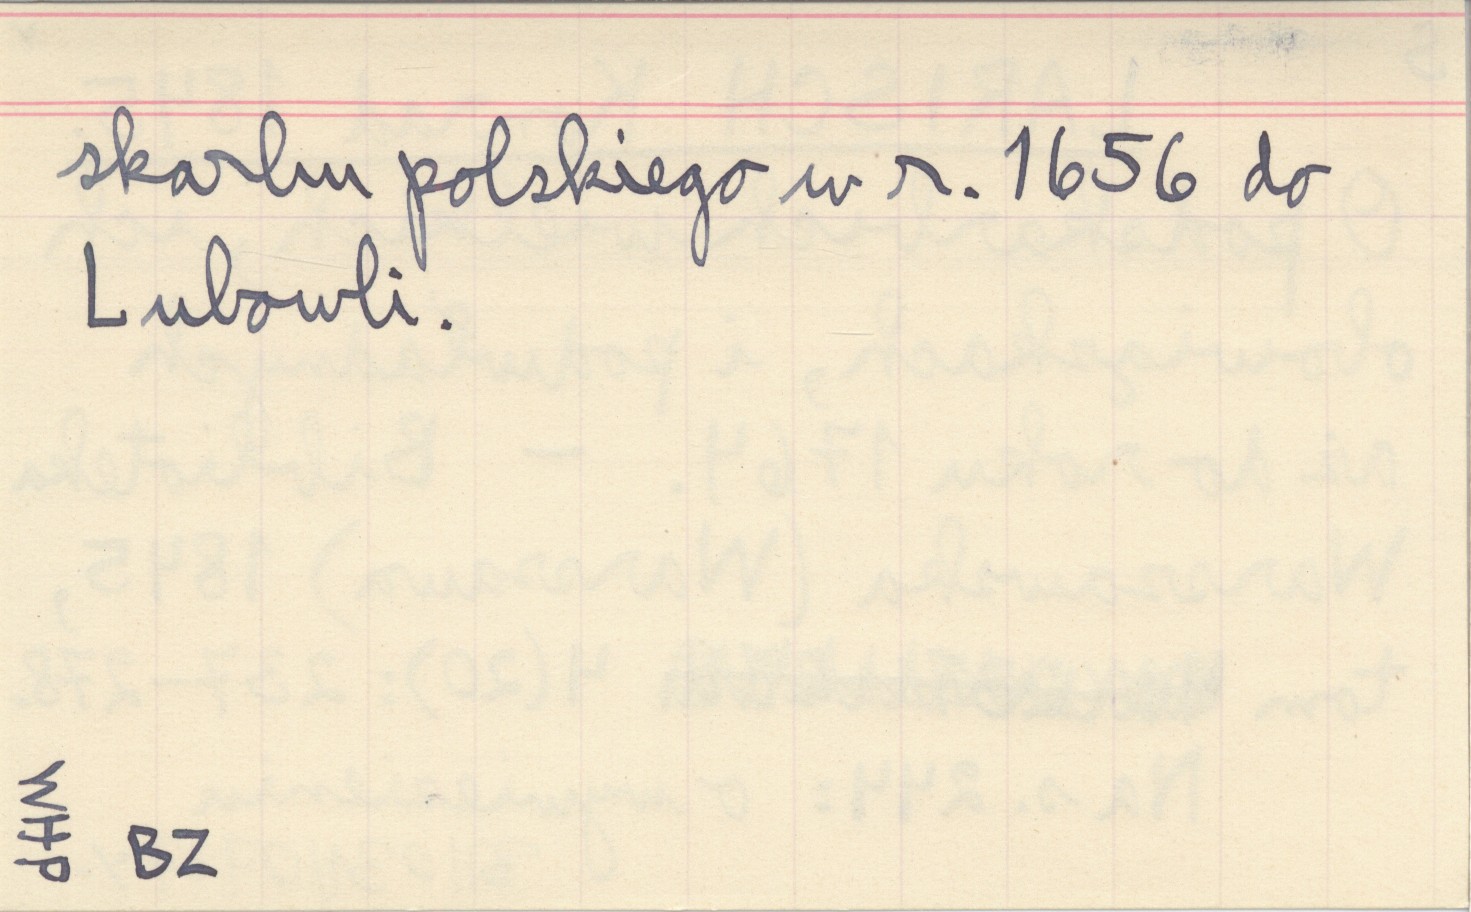 skarbu polskiego w r. 1656 do
Lubowli.
WHP
BZ